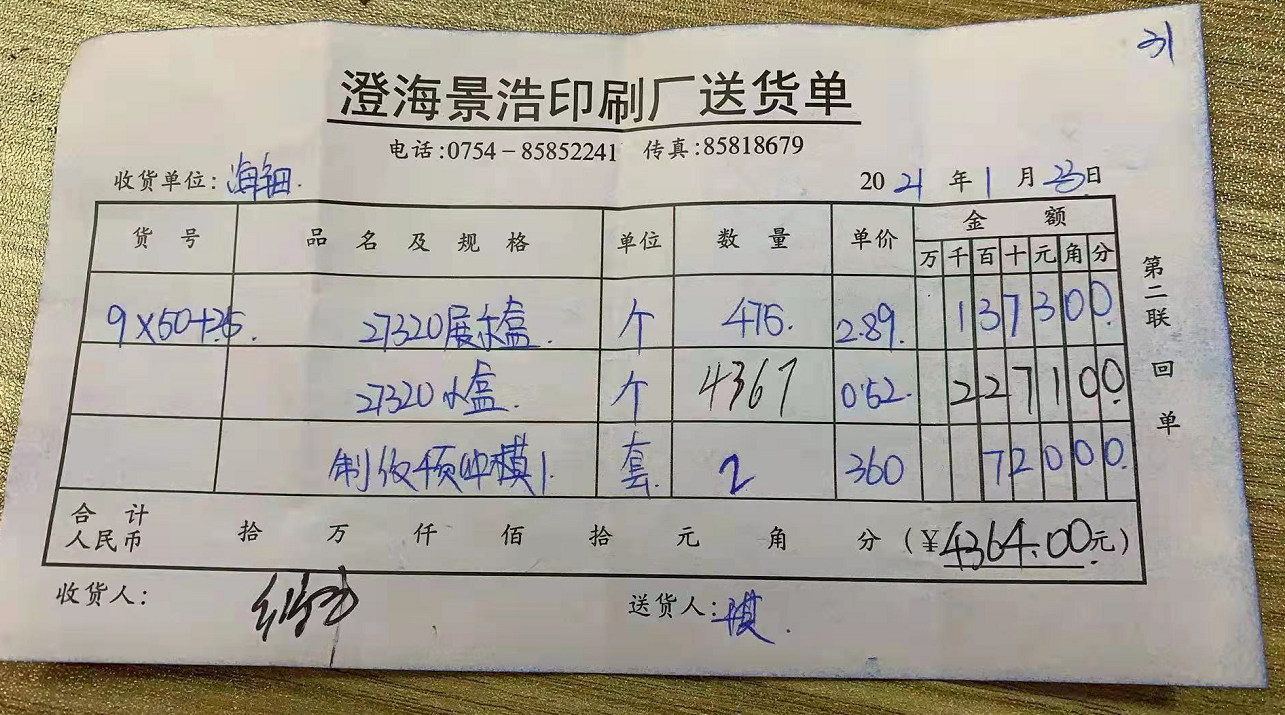 31
澄海景浩印刷厂送货单
电话:0754-85852241 传真:85818679
收货单位: 海钿. 2021年1月23日
货号 品名及规格 单位 数量 单价 金额
万 千 百 十 元 角 分
9×50+25. 27320展示盒. 个 475. 2.89. 1 3 7 3 0 0.
27320小盒. 个 4367 0.52. 2 2 7 1 0 0.
制版 模 套. 2 360 7 2 0 0 0.
合计
人民币 拾 万 仟 佰 拾 元 角 分 (¥4364.00元)
收货人: 送货人: 琪.
第二联 回单